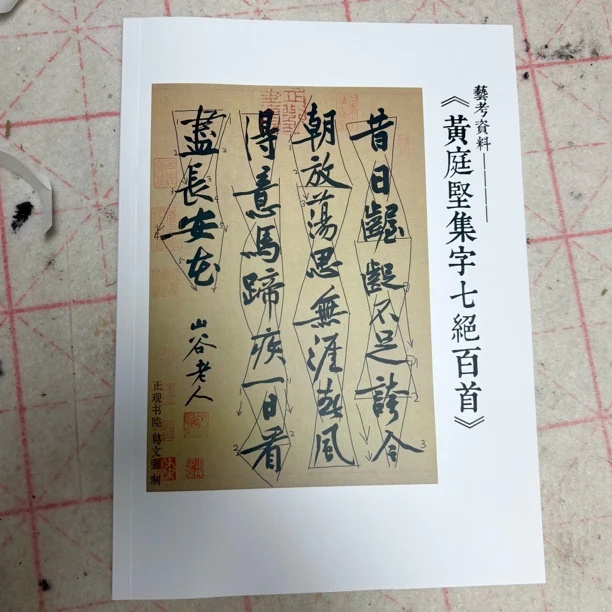 藝考資料————
《黃庭堅集字七絕百首》
昔日齷齪不足誇今
朝放蕩思無涯春風
得意馬蹄疾一日看
盡長安花
山谷老人
正观书院 制